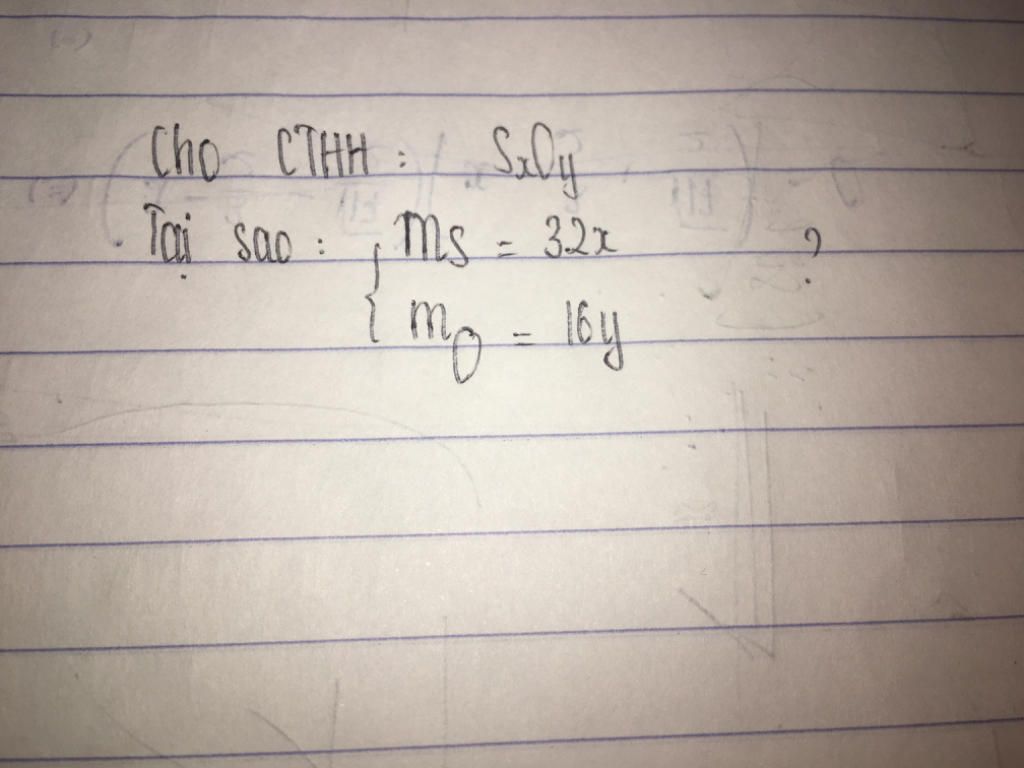 Cho CTHH : SxOy
Tại sao : { mS = 32x ?
mO = 16y